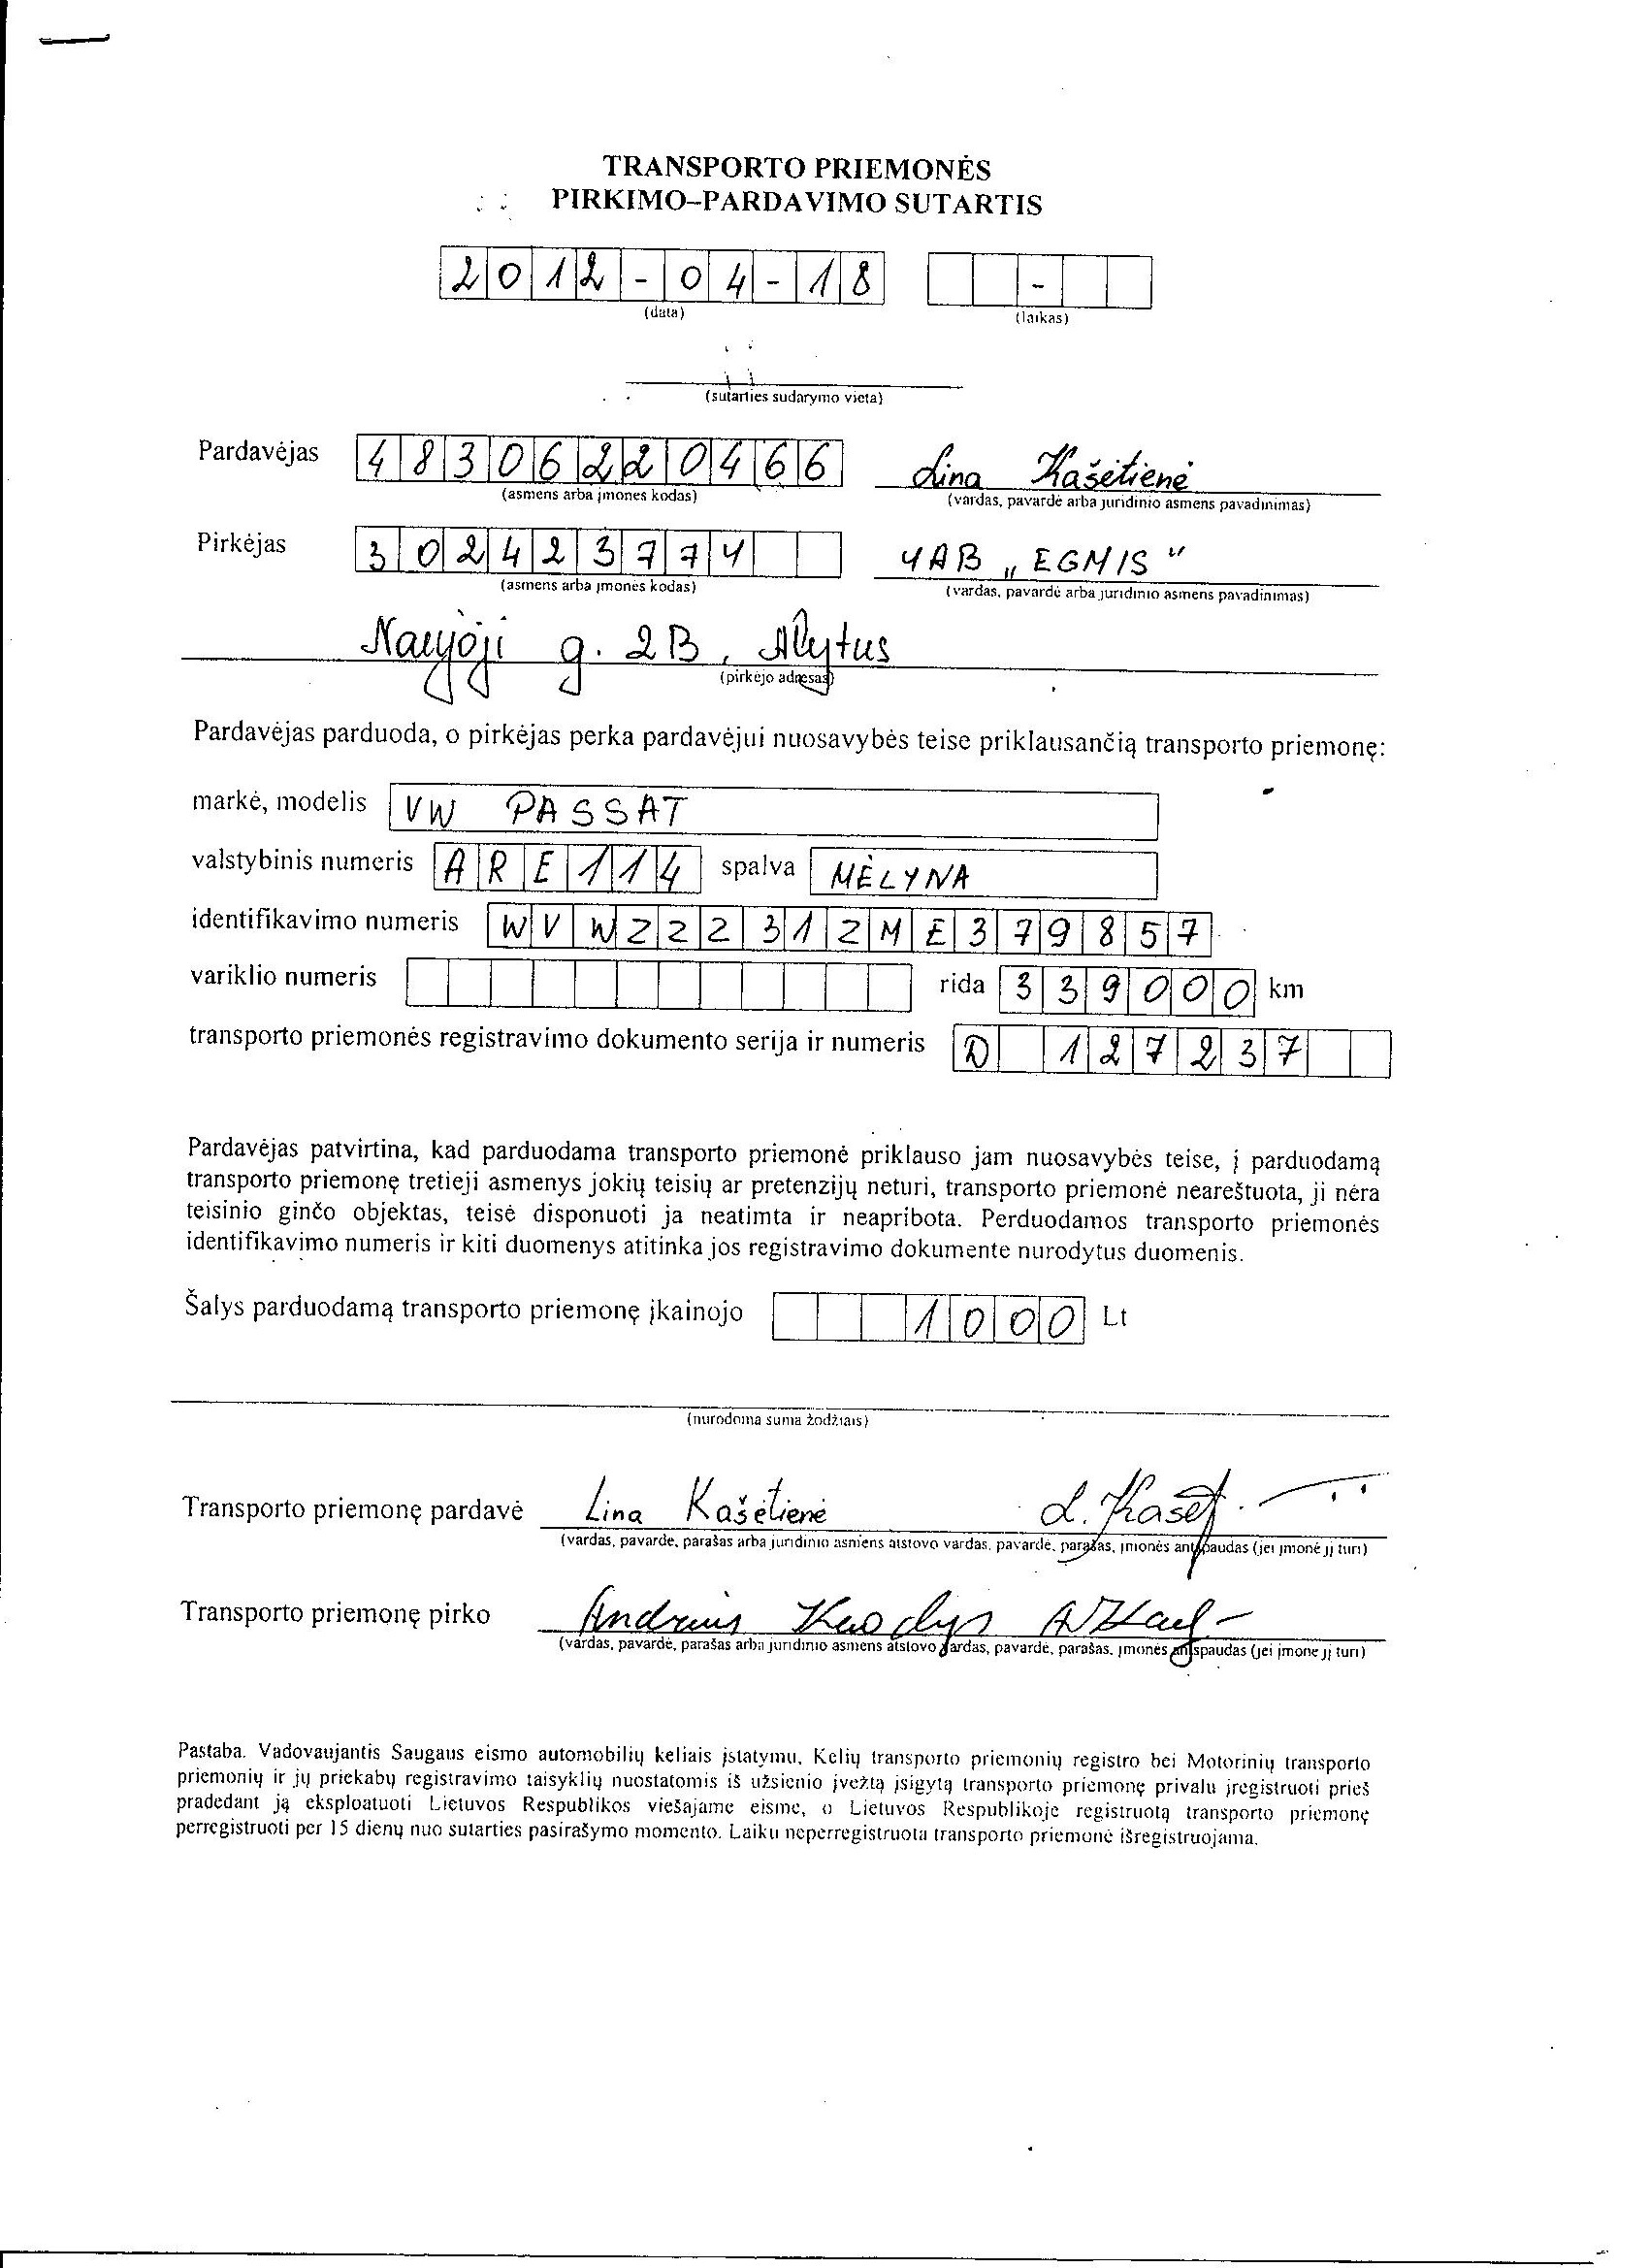 TRANSPORTO PRIEMONĖS
PIRKIMO–PARDAVIMO SUTARTIS
2012-04-18 -
(data) (laikas)
(sutarties sudarymo vieta)
Pardavėjas 48306220466 Lina Kašėtienė
(asmens arba įmonės kodas) (vardas, pavardė arba juridinio asmens pavadinimas)
Pirkėjas 302423774 UAB „EGMIS“
(asmens arba įmonės kodas) (vardas, pavardė arba juridinio asmens pavadinimas)
Naujoji g. 2B, Alytus
(pirkėjo adresas)
Pardavėjas parduoda, o pirkėjas perka pardavėjui nuosavybės teise priklausančią transporto priemonę:
markė, modelis VW PASSAT
valstybinis numeris ARE114 spalva MĖLYNA
identifikavimo numeris WVWZZZ31ZME379857
variklio numeris rida 339000 km
transporto priemonės registravimo dokumento serija ir numeris D 127237
Pardavėjas patvirtina, kad parduodama transporto priemonė priklauso jam nuosavybės teise, į parduodamą
transporto priemonę tretieji asmenys jokių teisių ar pretenzijų neturi, transporto priemonė neareštuota, ji nėra
teisinio ginčo objektas, teisė disponuoti ja neatimta ir neapribota. Perduodamos transporto priemonės
identifikavimo numeris ir kiti duomenys atitinka jos registravimo dokumente nurodytus duomenis.
Šalys parduodamą transporto priemonę įkainojo 1000 Lt
(nurodoma suma žodžiais)
Transporto priemonę pardavė Lina Kašėtienė L. Kašėt
(vardas, pavardė, parašas arba juridinio asmens atstovo vardas, pavardė, parašas, įmonės antspaudas (jei įmonė jį turi)
Transporto priemonę pirko Andrius
(vardas, pavardė, parašas arba juridinio asmens atstovo vardas, pavardė, parašas, įmonės antspaudas (jei įmonė jį turi)
Pastaba. Vadovaujantis Saugaus eismo automobilių keliais įstatymu, Kelių transporto priemonių registro bei Motorinių transporto
priemonių ir jų priekabų registravimo taisyklių nuostatomis iš užsienio įvežtą įsigytą transporto priemonę privalu įregistruoti prieš
pradedant ją eksploatuoti Lietuvos Respublikos viešajame eisme, o Lietuvos Respublikoje registruotą transporto priemonę
perregistruoti per 15 dienų nuo sutarties pasirašymo momento. Laiku neperregistruota transporto priemonė išregistruojama.